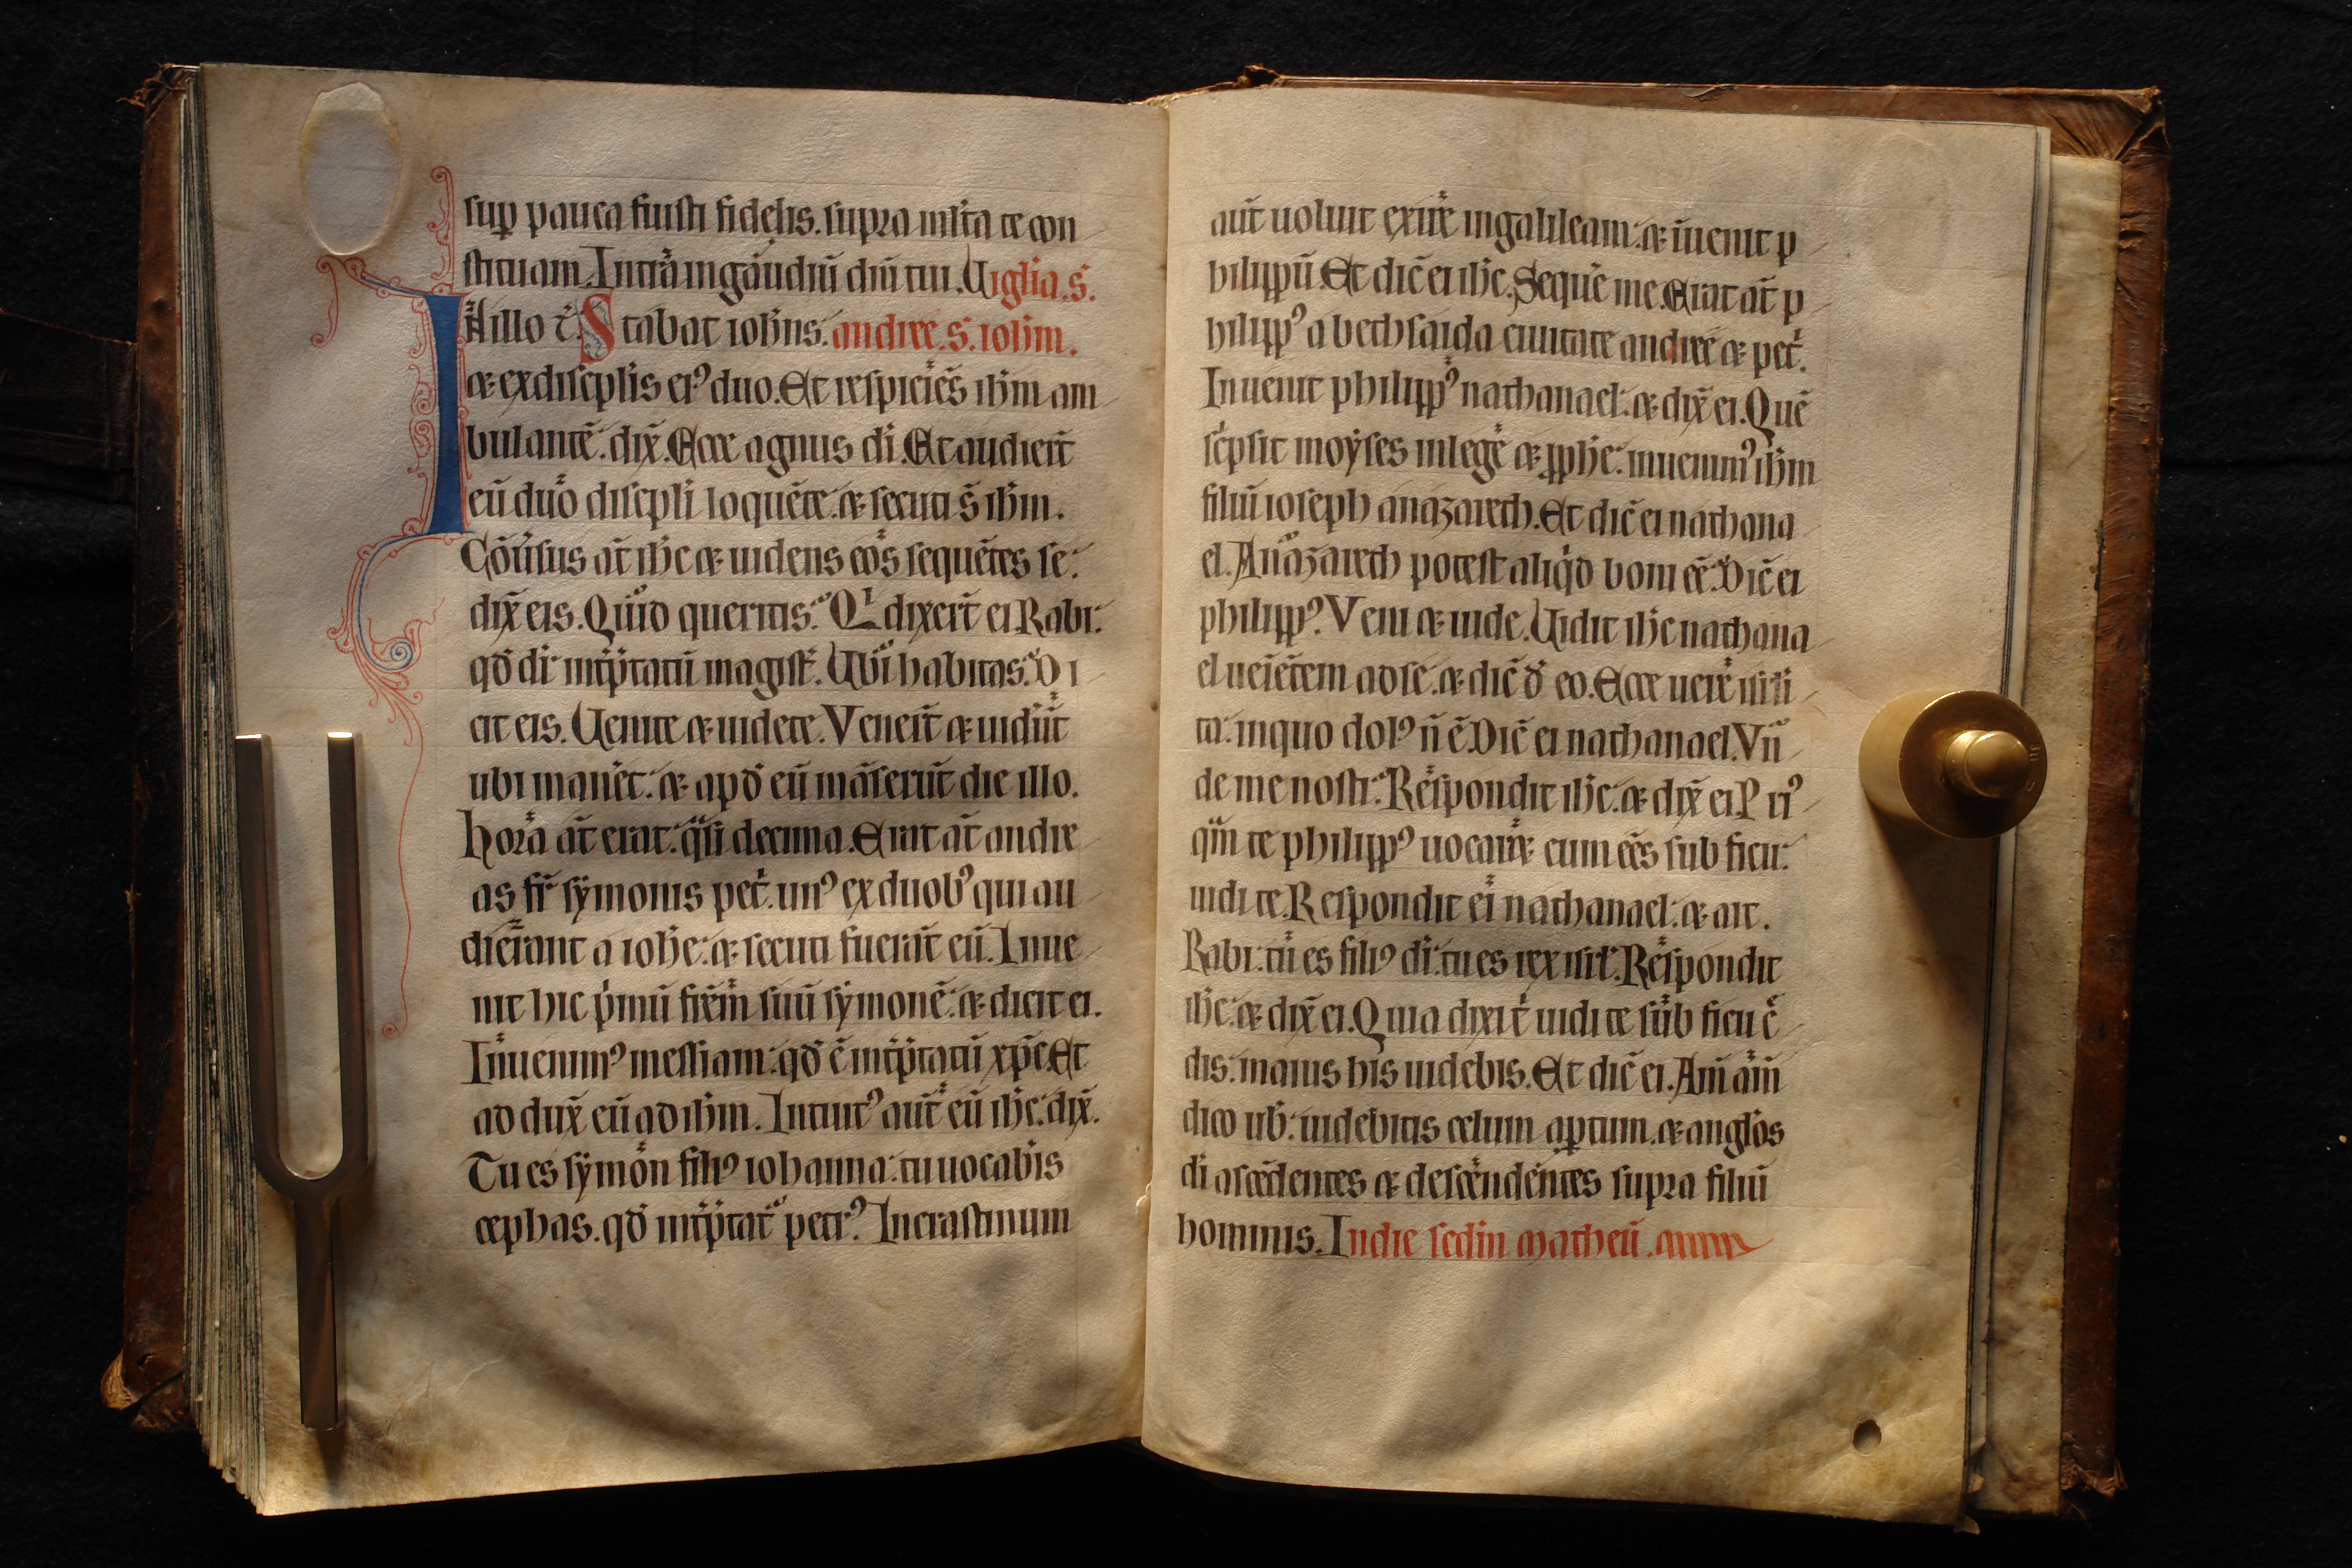 sup pauca fuisti fidelis. supra ml̃ta te con
stituam. Intra in gaudiũ dñi tui. Uiglia. s̃.
N illo t̃. Stabat iohñs. andree. s̃. iohm̃.
⁊ ex discip̃lis ei⁹ duo. Et respiciẽs ihm̃ am
bulantẽ. dix̃. Ecce agnus dĩ. Et audier̃t
eũ duo discip̃li loquẽte. ⁊ secuti s̃ ihm̃.
Cõũsus at̃ ihc̃ ⁊ uidens eos sequẽtes se.
dix̃ eis. Quid queritis. Qi dixer̃t ei Rabi.
qđ dr̃ int̃p̃tatũ magist̃. Ubi habitas. Di
cit eis. Uenite ⁊ uidete. Vener̃t ⁊ uider̃t
ubi manet̃. ⁊ apđ eũ mãserũt die illo.
hora at̃ erat. q̃si decima. Erat at̃ andre
as fr̃ symonis pet̃. un⁹ ex duob⁹ qui au
dierant a iohẽ. ⁊ secuti fuerãt eũ. Inue
nit hic p̃mũ fr̃em̃ suũ symonẽ. ⁊ dicit ei.
Inuenim⁹ messiam. qđ ẽ int̃p̃tatũ xp̃c. Et
ad dux̃ eũ ad ihm̃. Intuit⁹ aut̃ eũ ihc̃. dix̃.
Tu es symon fili⁹ iohanna. tu uocabis
cephas. qđ int̃p̃tat̃ petr⁹. Incrastinum
aut̃ uoluit exire in galileam. ⁊ ĩuenit p
hilippũ. Et dic̃ ei ihc̃. Sequẽ me. Erat at̃ p
hilipp⁹ a bethsaida ciuitate andree ⁊ pet̃.
Inuenit philipp⁹ nathanael. ⁊ dix̃ ei. Quẽ
sc̃psit moyses in lege ⁊ p̃phẽ. inuenim⁹ ihm̃
filiũ ioseph a nazareth. Et dic̃ ei nathana
el. A nazareth potest aliq̃d boni eẽ. Dic̃ ei
philipp⁹. Veni ⁊ uide. Uidit ihc̃ nathana
el ueiẽtem ad se. ⁊ dic̃ đ eo. Ecce uere isrl̃i
ta. in quo dol⁹ ñ ẽ. Dic̃ ei nathanael. Vñ
de me nosti. Respondit ihc̃. ⁊ dix̃ ei. P ri⁹
q̃m te philipp⁹ uocar̃. cum eẽs sub ficu.
uidi te. Respondit ei nathanael. ⁊ ait.
Rabi. tu es fili⁹ dĩ. tu es rex isrl̃. Respondit
ihc̃. ⁊ dix̃ ei. Quia dixi t̃ uidi te sub ficu c̃
dis. maius his uidebis. Et dic̃ ei. Am̃ am̃
dico ub̃. uidebitis celum aptum. ⁊ anglos
dĩ ascẽdentes ⁊ descendentes supra filiũ
hominis. In die sc̃i matheũ.